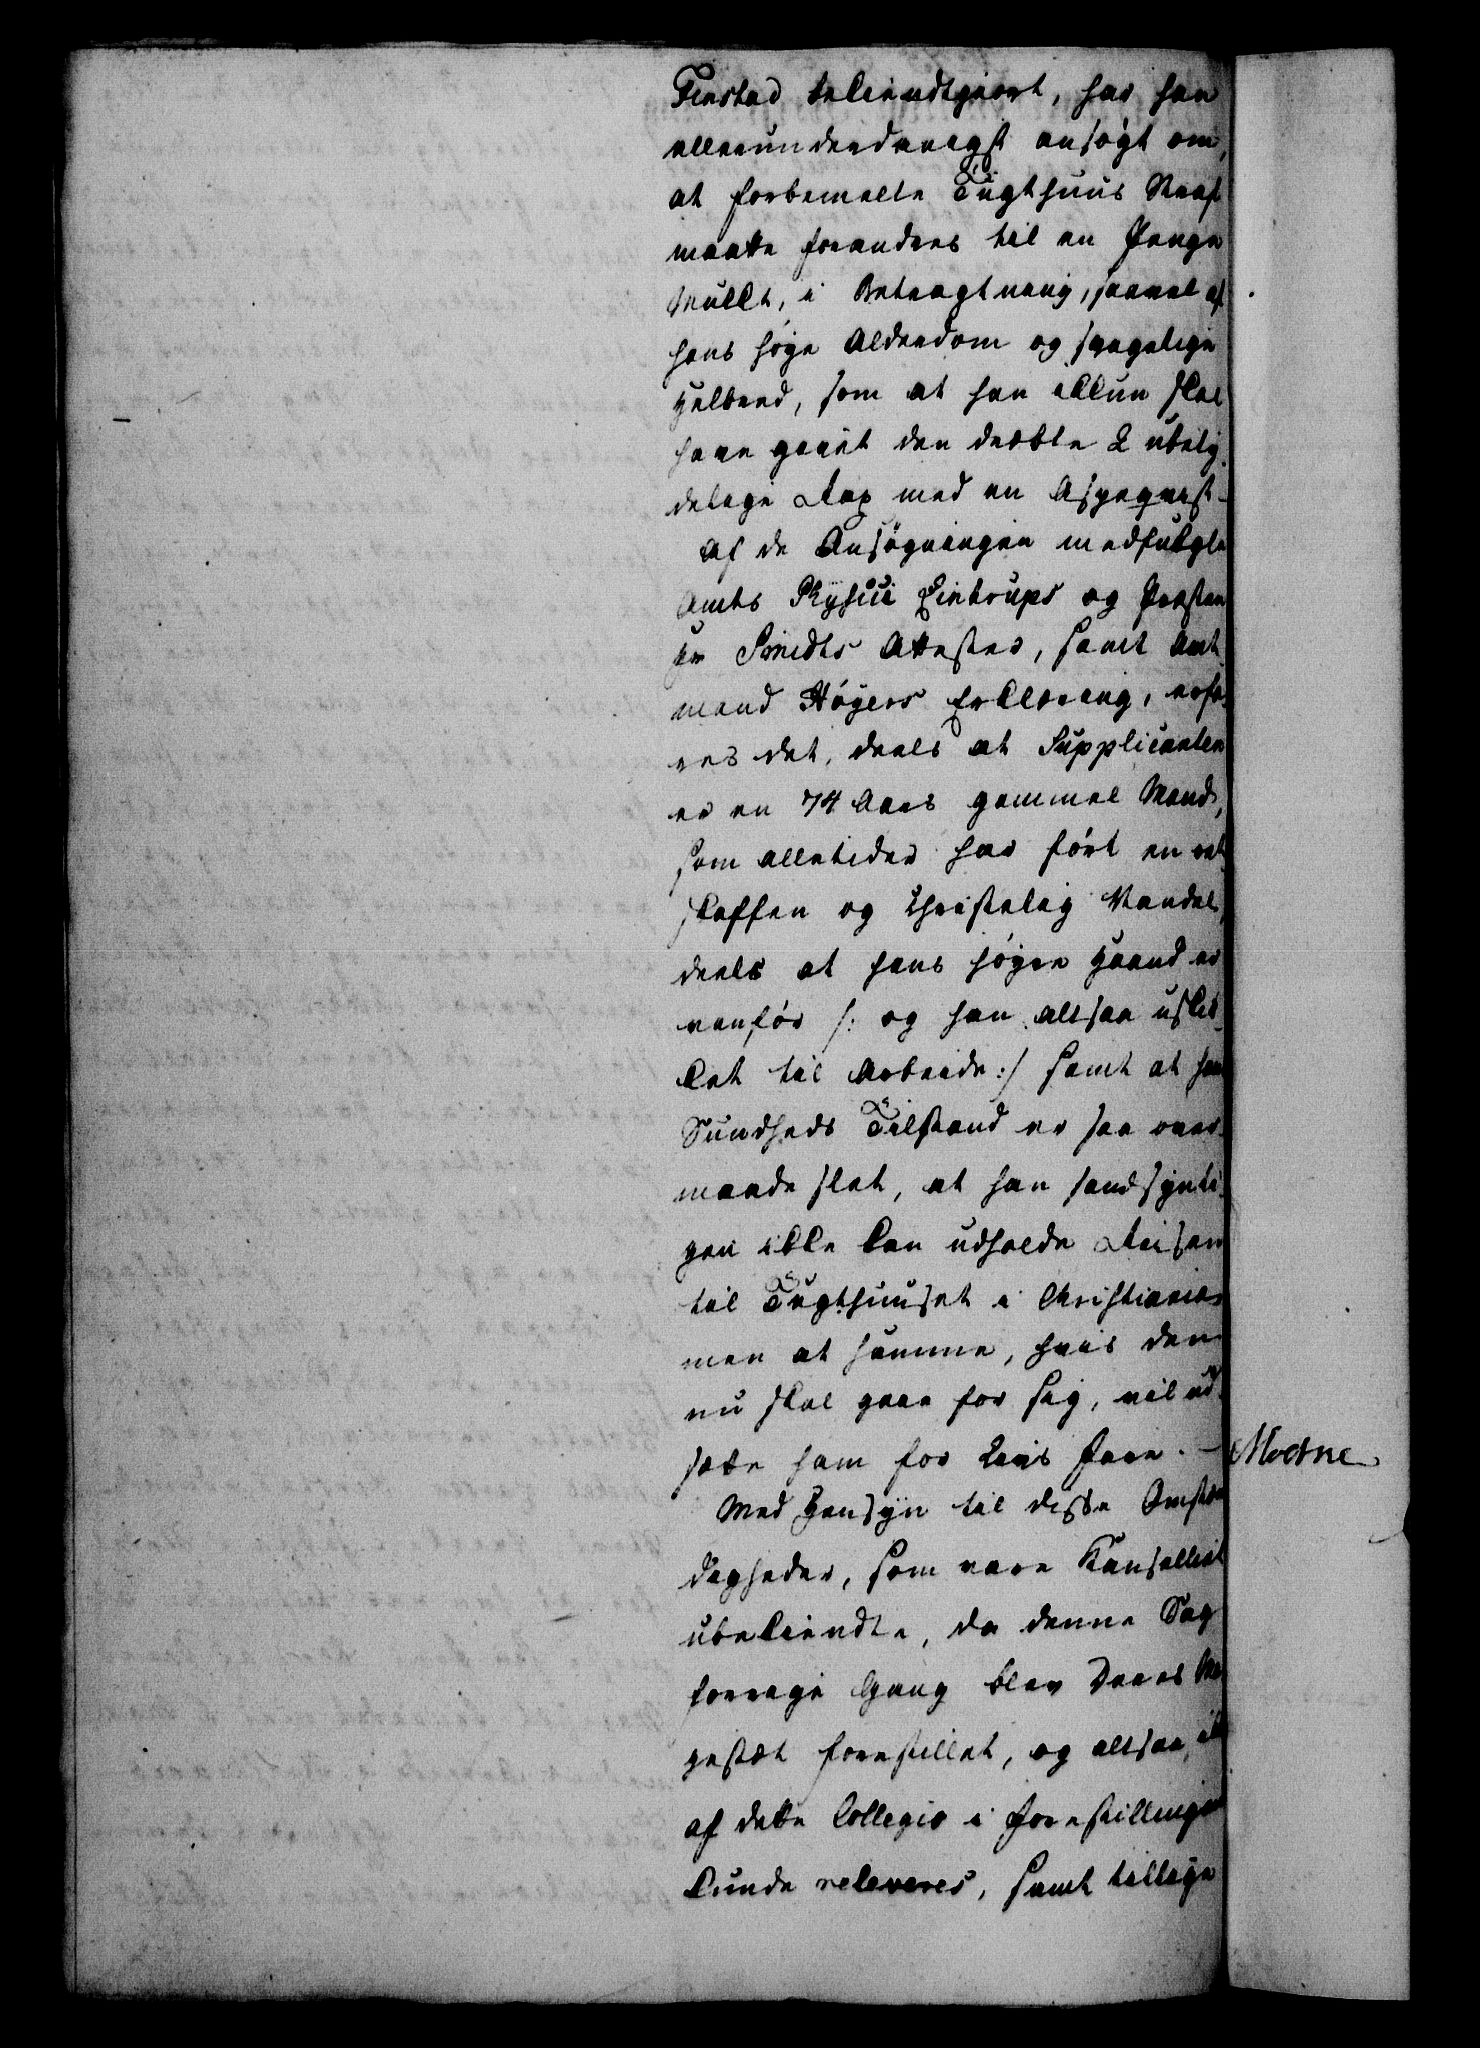 Finstad bekiendtgiort, har han
allerunderdanigst ansögt om,
at forbemelte Tugthuus Straf
maatte forandres til en Penge
Mulkt, i Betragtning, saavel af
hans høye Alderdom og svagelige
Helbred, som at han ikkun skal
have givet den dræbte 2 ubety-
delige Rap med en Aspeqvist-
Af de Ansøgningen medfulgte
Amts Physici Eintrups og Præsten
Hr Smidts Attester, samt Amt-
mand Höyers Erklæring, erfa-
res det, deels at Supplicanten
er en 74 Aars gammel Mand,
som alletider har ført en ret-
skaffen og Christelig Vandel,
deels at hans høyre Haand er
vanför /: og han altsaa uskik-
ket til Arbeide :/ samt at hans
Sundheds Tilstand er saa over-
maade slet, at han sandsynli-
gen ikke kan udholde Reisen
til Tugthuuset i Christiania
men at samme, hvis den
nu skal gaae for sig, vil ud-
sætte ham for Livs Fare. –
Med Hensyn til disse Omstæn-
digheder, som vare Kanselliet
ubekiendte, da denne Sag
forrige Gang blev Deres Ma-
gestæt forestillet, og altsaa, ikke
af dette Collegio i Forestillingen
kunde releveres, samt tillige
Modne